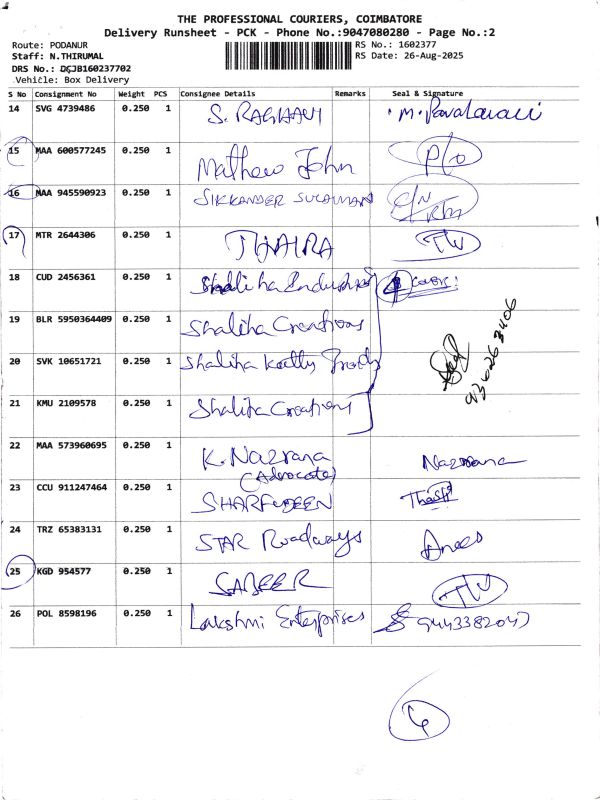 THE PROFESSIONAL COURIERS, COIMBATORE
Delivery Runsheet - PCK - Phone No.:9047080280 - Page No.:2
Route: PODANUR
Staff: N.THIRUMAL
DRS No.: DCJB160237702
Vehicle: Box Delivery
RS No.: 1602377
RS Date: 26-Aug-2025
S No Consignment No Weight PCS Consignee Details Remarks Seal & Signature
14 SVG 4739486 0.250 1 S. RAGHAVI
15 MAA 600577245 0.250 1 Mathew John P/O
16 MAA 945590923 0.250 1 SIKKANDER SULAIMAN
17 MTR 2644306 0.250 1 THAIRA
18 CUD 2456361 0.250 1 Shaliha Industries 4 cover:
19 BLR 5950364409 0.250 1 Shaliha Creations
20 SVK 10651721 0.250 1 Shaliha
21 KMU 2109578 0.250 1 Shaliha Creations
22 MAA 573960695 0.250 1 K. Nazrana (Advocate) Nazrana
23 CCU 911247464 0.250 1 SHARFUDEEN
24 TRZ 65383131 0.250 1 STAR Roadways Anees
25 KGD 954577 0.250 1 SABEER
26 POL 8598196 0.250 1 Lakshmi Enterprises